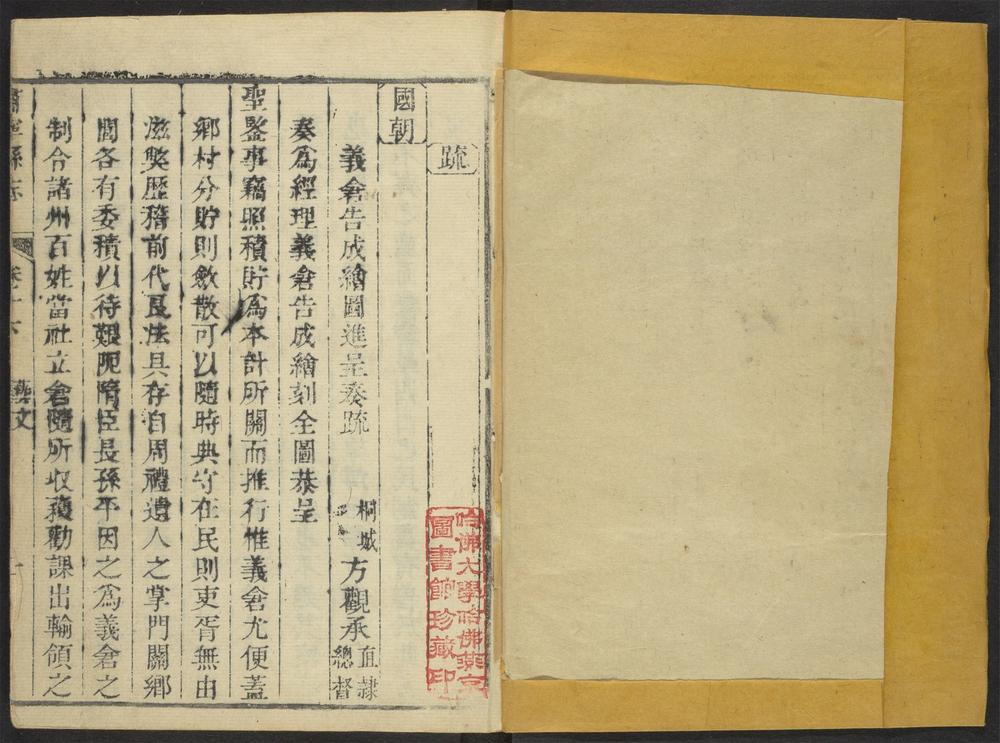 哈佛大學哈佛燕京
圖書館珍藏印
疏
國朝
義倉告成繪圖進呈奏疏 桐城 方觀承 直隸總督
奏爲經理義倉告成繪刻全圖恭呈
聖鑒事竊照積貯爲本計所關而推行惟義倉尤便蓋
鄉村分貯則斂散可以隨時典守在民則吏胥無由
滋獘歷稽前代良法具存自周禮遺人之掌門關鄉
閭各有委積以待艱阨隋臣長孫平因之爲義倉之
制令諸州百姓當社立倉隨所收穫勸課出輸領之
縣志 卷十六 藝文 一